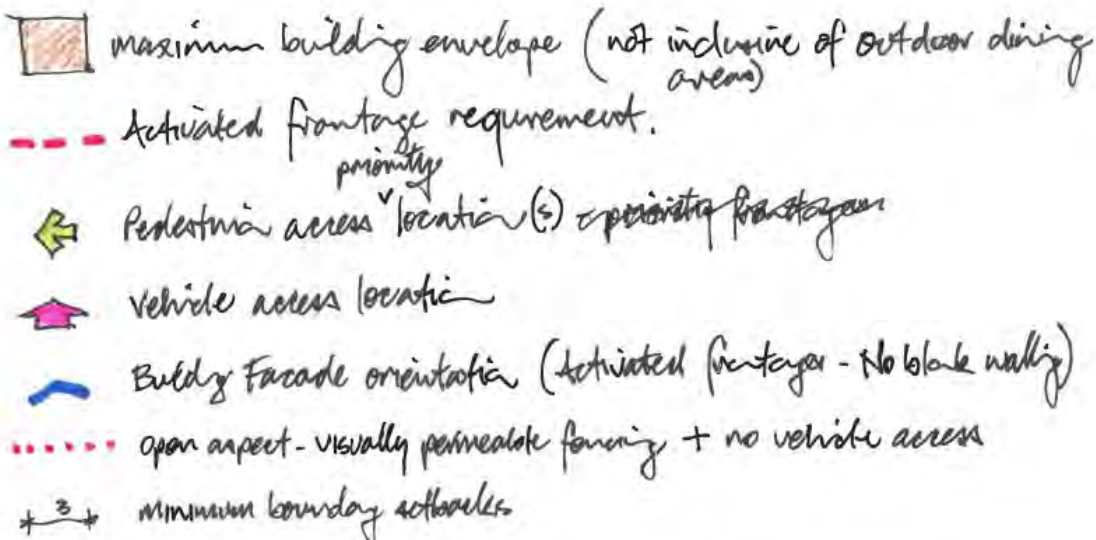 maximum building envelope (not inclusive of outdoor dining
areas)
Activated frontage requirement.
priority
Pedestrian access location(s) priority frontages
Vehicle access location
Building Facade orientation (Activated frontages - No blank walling)
open aspect - visually permeable fencing + no vehicle access
3 minimum boundary setbacks